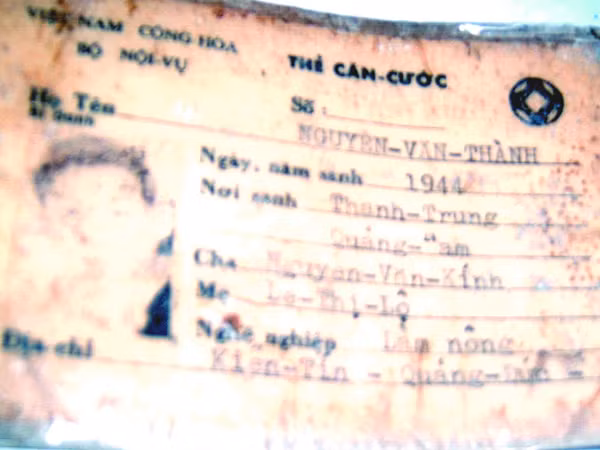 VIỆT-NAM CỘNG-HÒA
BỘ NỘI-VỤ
THẺ CĂN-CƯỚC
Số :
Họ Tên
NGUYỄN-VĂN-THÀNH
Bí Danh
Ngày, năm sanh 1944
Nơi sanh Thanh-Trung
Quảng-Nam
Cha Nguyễn-Văn-Kính
Mẹ Lê-Thị-Lộ
Nghề nghiệp Làm nông
Địa chỉ